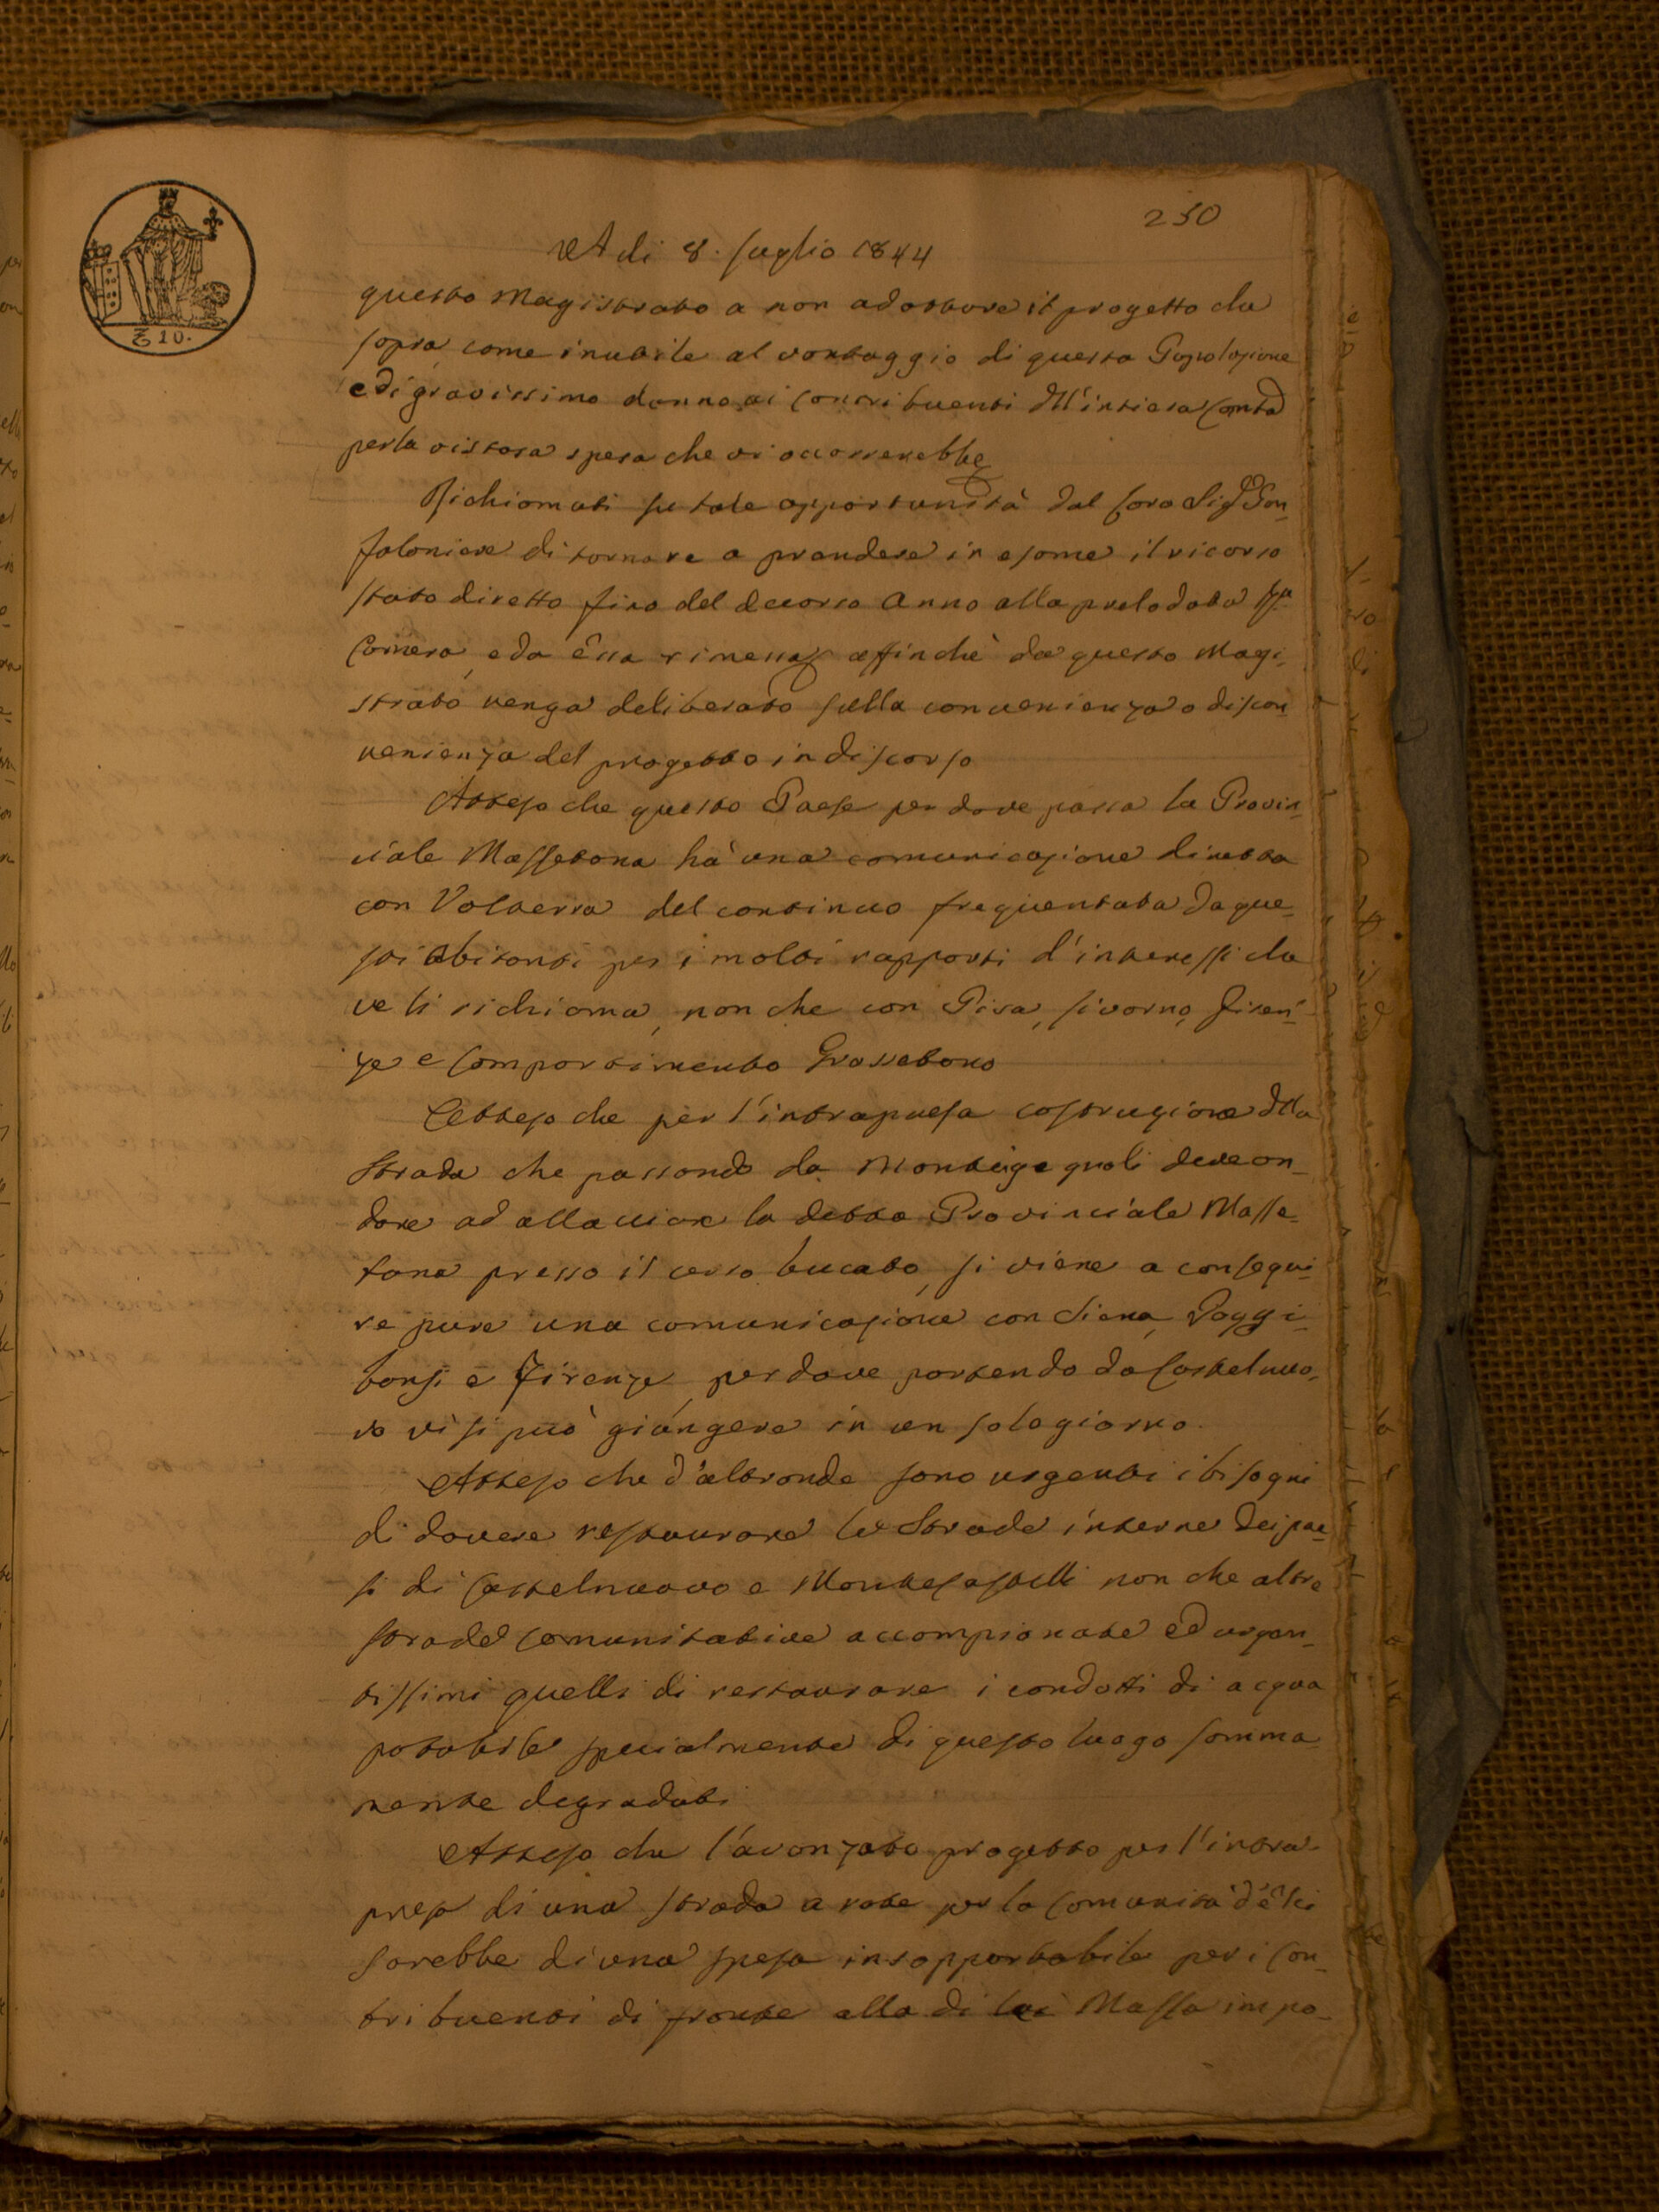 250
A di 8. Luglio 1844
questo Magistrato a non adottare il progetto da
sopra come inutile al vantaggio di questa Popolazione
e di gravissimo danno ai Contribuenti dell'intiera Comtà
per la vistosa spesa che vi occorrerebbe
Richiamati su tale opportunità dal loro Sigr Gon,
faloniere di tornare a prendere in esame il ricorso
stato diretto fino del decorso Anno alla prelodata
Camera, e da essa rimessa affinchè da questo Magi,
strato venga deliberato sulla convenienza o discon,
venienza del progetto in discorso
Atteso che questo Paese per dove passa la Provin,
ciale Massetana hà una comunicazione diretta
con Volterra del continuo frequentata da que,
sti abitanti per i molti rapporti d'interessi da
ve li richiama, non che con Pisa, Livorno, Firen,
ze e Compartimento Grossetano
Atteso che per l'intrapresa costruzione della
Strada che passando da Monteguagnoli deve an,
dare ad allacciare la detta Provinciale Masse,
tana presso il cerro bucato, si viene a consegui,
re pure una comunicazione con Siena, Poggi,
bonsi e Firenze per dove partendo da Castelnuo,
vo vi si può giungere in un solo giorno.
Atteso che d'altronde sono urgenti i bisogni
di dovere restaurare le Strade interne dei pae,
si di Castelnuovo e Montecastelli non che altre
strade Comunitative accampionate ed urgen,
tissimi quelli di restaurare i condotti di acqua
potabile specialmente di questo luogo somma
mente degradati
Atteso che l'avanzato progetto per l'intra,
presa di una strada a rote per la Comunità d'Elci
sarebbe di una spesa insopportabile per i Con,
tribuenti di fronte alla di lei Massa impo,
₤ 10.